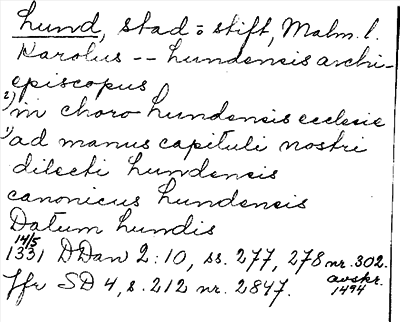 Lund, stad o stift, Malm. l.
Karolus -- Lundensis archi-
episcopus
2) in choro Lundensis ecclesie
1) ad manus capituli nostri
dilecti Lundensis
canonicus Lundensis
Datum Lundis
14/5
1331 DDan 2:10, ss. 277, 278 nr. 302.
avskr. 1494
Jfr SD 4, s. 212 nr. 2847.